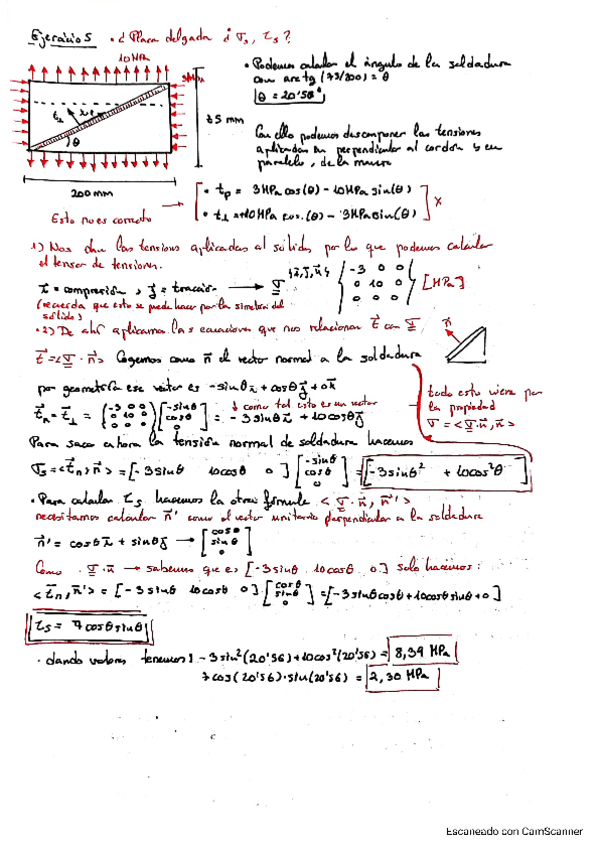 Ejercicio 5 • ¿Placa delgada ¿ σs, τs?
10 MPa
3MPa
• Podemos calcular el ángulo de la soldadura
con arc tg (75/200) = θ
θ = 20'56°
t⊥
θ
75 mm
200 mm
Con ello podemos descomponer las tensiones
aplicadas en perpendicular al cordón y en
paralelo, de la
Esto no es correcto
• tp = 3MPa cos(θ) - 10MPa sin(θ)
• t⊥ = 10MPa cos.(θ) - 3MPa sin(θ)
x
1) Nos dan las tensions aplicadas al sólido, por lo que podemos calcular
el tensor de tensiones.
x = compresión, y = tracción → σ {i, j, k} { -3 0 0
0 10 0
0 0 0 } [MPa]
(recuerda que esto se puede hacer por la simetría del
sólido)
• 2) De ahí aplicamos las ecuaciones que nos relacionan t con σ
n
t = <σ · n> Cogemos como n el vector normal a la soldadura
por geometría ese vector es -sinθi + cosθj + 0k
todo esto viene por
la propiedad
σ = <σ·n, n>
tn = t⊥ = (-3 0 0
0 10 0
0 0 0) [-sinθ
cosθ
0] = -3sinθi + 10cosθj
↓ como tal esto es un vector
Para sacar ahora la tensión normal de soldadura hacemos
σs = <tn, n> = [-3sinθ 10cosθ 0] [-sinθ
cosθ
0] = -3sinθ² + 10cos²θ
• Para calcular τs hacemos la otra fórmula <σ·n, n'>
necesitamos calcular n' como el vector unitario perpendicular a la soldadura
n' = cosθi + sinθj → [cosθ
sinθ
0]
Como σ·n → sabemos que es [-3sinθ 10cosθ 0] solo hacemos:
<tn, n'> = [-3sinθ 10cosθ 0] · [cosθ
sinθ
0] = [-3sinθcosθ + 10cosθsinθ + 0]
τs = 7cosθsinθ
• dando valores tenemos: -3sin²(20'56) + 10cos²(20'56) = 8,39 MPa
7cos(20'56)·sin(20'56) = 2,30 MPa
Escaneado con CamScanner